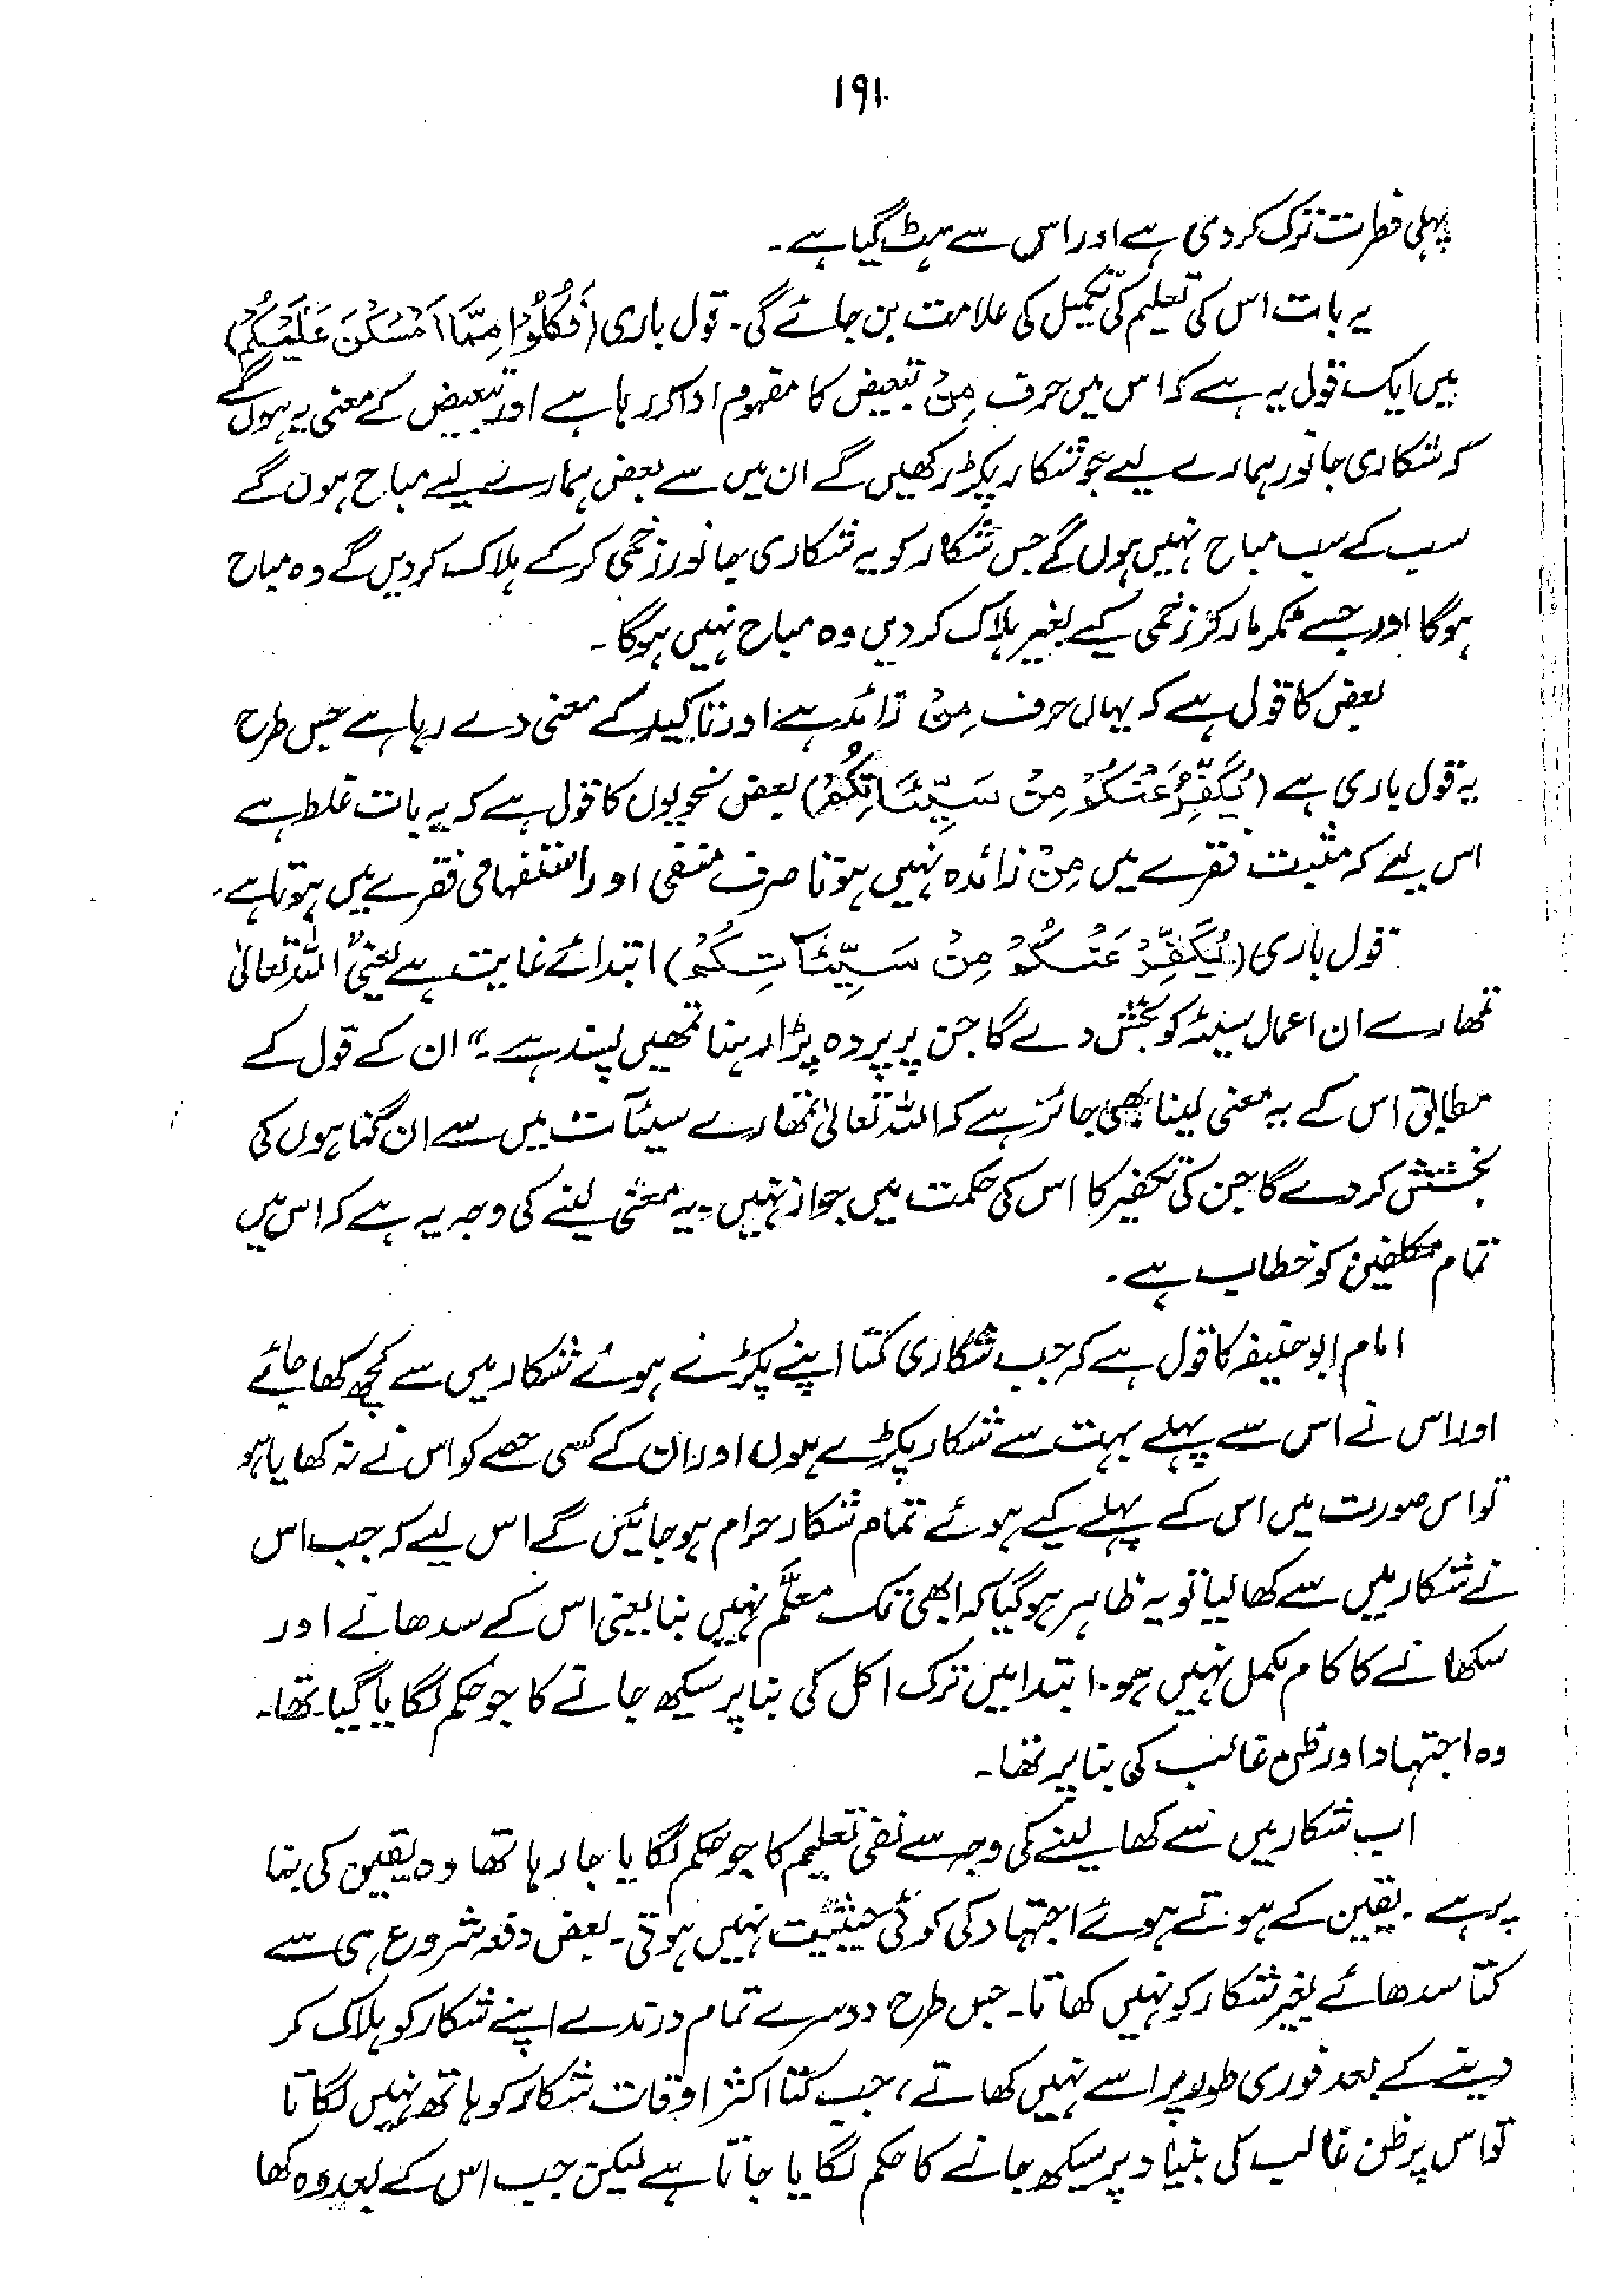 ۱۹۱
پہلی فطرت ترک کر دی ہے اور اس سے ہٹ گیا ہے۔
یہ بات اس کی تعلیم کی تکمیل کی علامت بن جائے گی۔ قول باری (فَكُلُوْا مِمَّا اَمْسَكْنَ عَلَيْكُمْ)
میں ایک قول یہ ہے کہ اس میں حرف مِنْ تبعیض کا مفہوم ادا کر رہا ہے اور تبعیض کے معنی یہ ہوں گے
کہ شکاری جانور ہمارے لیے جو شکار پکڑ رکھیں گے ان میں سے بعض ہمارے لیے مباح ہوں گے
سب کے سب مباح نہیں ہوں گے جس شکار کو یہ شکاری جانور زخمی کر کے ہلاک کر دیں گے وہ مباح
ہوگا اور جسے ٹکر مار کر زخمی کیے بغیر ہلاک کر دیں وہ مباح نہیں ہوگا۔
بعض کا قول ہے کہ یہاں حرف مِنْ زائد ہے اور تاکید کے معنی دے رہا ہے جس طرح
یہ قول باری ہے (يُكَفِّرْ عَنْكُمْ مِنْ سَيِّئَاتِكُمْ) بعض نحویوں کا قول ہے کہ یہ بات غلط ہے
اس لیے کہ مثبت فقرے میں مِنْ زائدہ نہیں ہوتا صرف منفی اور استفہامی فقرے میں ہوتا ہے۔
قول باری (يُكَفِّرْ عَنْكُمْ مِنْ سَيِّئَاتِكُمْ) ابتدائے غایت ہے یعنی "اللہ تعالیٰ
تمھارے ان اعمال سیئہ کو بخش دے گا جن پر پردہ پڑا رہنا تمھیں پسند ہے۔" ان کے قول کے
مطابق اس کے یہ معنی لینا بھی جائز ہے کہ اللہ تعالیٰ تمھارے سیئآت میں سے ان گناہوں کی
بخشش کر دے گا جن کی تکفیر کا اس کی حکمت میں جواز نہیں۔ یہ معنی لینے کی وجہ یہ ہے کہ اس میں
تمام مکلفین کو خطاب ہے۔
امام ابوحنیفہ کا قول ہے کہ جب شکاری کتا اپنے پکڑے ہوئے شکار میں سے کچھ کھا جائے
اور اس نے اس سے پہلے بہت سے شکار پکڑے ہوں اور ان کے کسی حصے کو اس نے نہ کھایا ہو
تو اس صورت میں اس کے پہلے کیے ہوئے تمام شکار حرام ہو جائیں گے اس لیے کہ جب اس
نے شکار میں سے کھا لیا تو یہ ظاہر ہوگیا کہ ابھی تک معلَّم نہیں بنا یعنی اس کے سدھانے اور
سکھانے کا کام مکمل نہیں ہوا۔ ابتدا میں ترک اکل کی بنا پر سیکھ جانے کا جو حکم لگایا گیا تھا۔
وہ اجتہاد اور ظن غالب کی بنا پر تھا۔
اب شکار میں سے کھا لینے کی وجہ سے نفی تعلیم کا جو حکم لگایا جا رہا تھا وہ یقین کی بنا
پر ہے۔ یقین کے ہوتے ہوئے اجتہاد کی کوئی حیثیت نہیں ہوتی۔ بعض دفعہ شروع ہی سے
کتا سدھائے بغیر شکار کو نہیں کھاتا۔ جس طرح دوسرے تمام درندے اپنے شکار کو ہلاک کر
دینے کے بعد فوری طور پر اسے نہیں کھاتے، جب کتا اکثر اوقات شکار کو ہاتھ نہیں لگاتا
تو اس پر ظن غالب کی بنیاد پر سیکھ جانے کا حکم لگایا جاتا ہے لیکن جب اس کے بعد وہ کھا